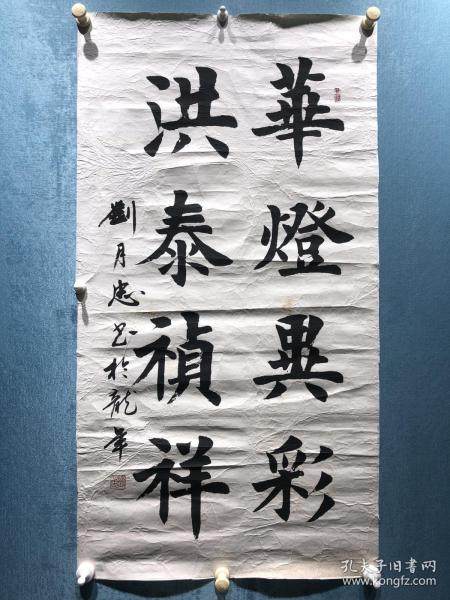 華燈異彩
洪泰禎祥
劉月忠书於龍年
孔夫子旧书网
www.kongfz.com